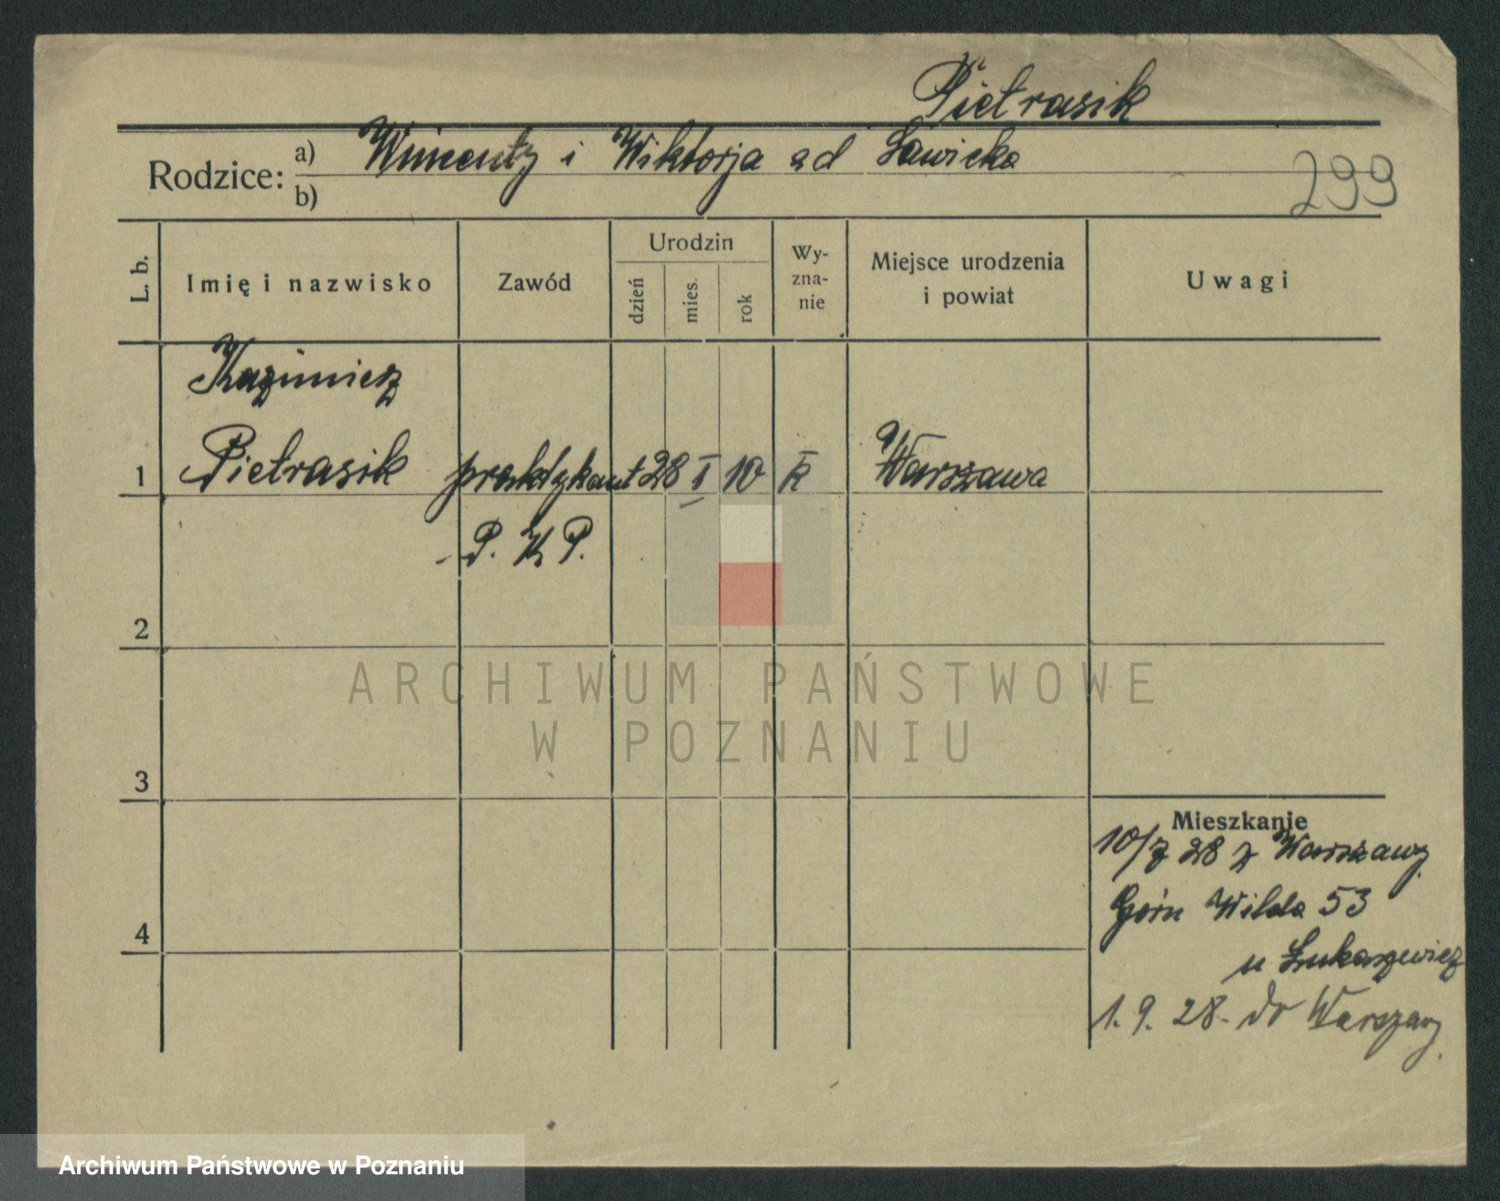 Pietrasik
Rodzice: a) Wincenty i Wiktorja ad Sawicka
b)
299
L. b.
Imię i nazwisko
Zawód
Urodzin
dzień
mies.
rok
Wy-
zna-
nie
Miejsce urodzenia
i powiat
Uwagi
Kazimierz
1 Pietrasik praktykant 28 I 10 K Warszawa
P. K P.
2
3
4
Mieszkanie
10/7 28 z Warszawy
Górn Wilda 53
u Łukaszewicz
1. 9. 28. do Warszawy.
ARCHIWUM PAŃSTWOWE
W POZNANIU
Archiwum Państwowe w Poznaniu